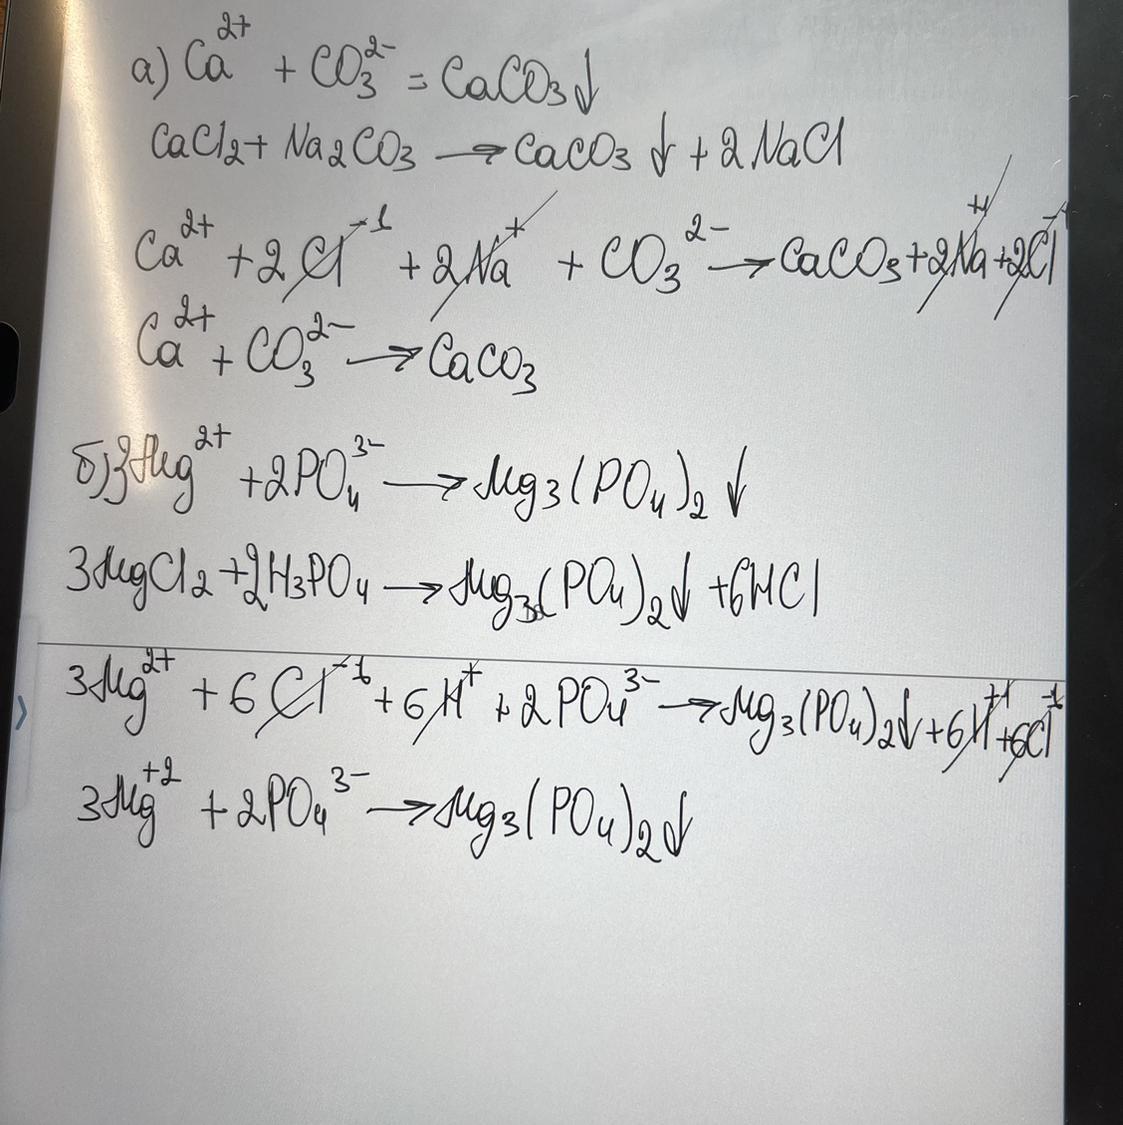 а) Ca²⁺ + CO₃²⁻ = CaCO₃↓
CaCl₂ + Na₂CO₃ → CaCO₃↓ + 2NaCl
Ca²⁺ + 2Cl⁻¹ + 2Na⁺ + CO₃²⁻ → CaCO₃ + 2Na⁺¹ + 2Cl⁻¹
Ca²⁺ + CO₃²⁻ → CaCO₃
б) 3Mg²⁺ + 2PO₄³⁻ → Mg₃(PO₄)₂↓
3MgCl₂ + 2H₃PO₄ → Mg₃(PO₄)₂↓ + 6HCl
3Mg²⁺ + 6Cl⁻¹ + 6H⁺ + 2PO₄³⁻ → Mg₃(PO₄)₂↓ + 6H⁺¹ + 6Cl⁻¹
3Mg⁺² + 2PO₄³⁻ → Mg₃(PO₄)₂↓